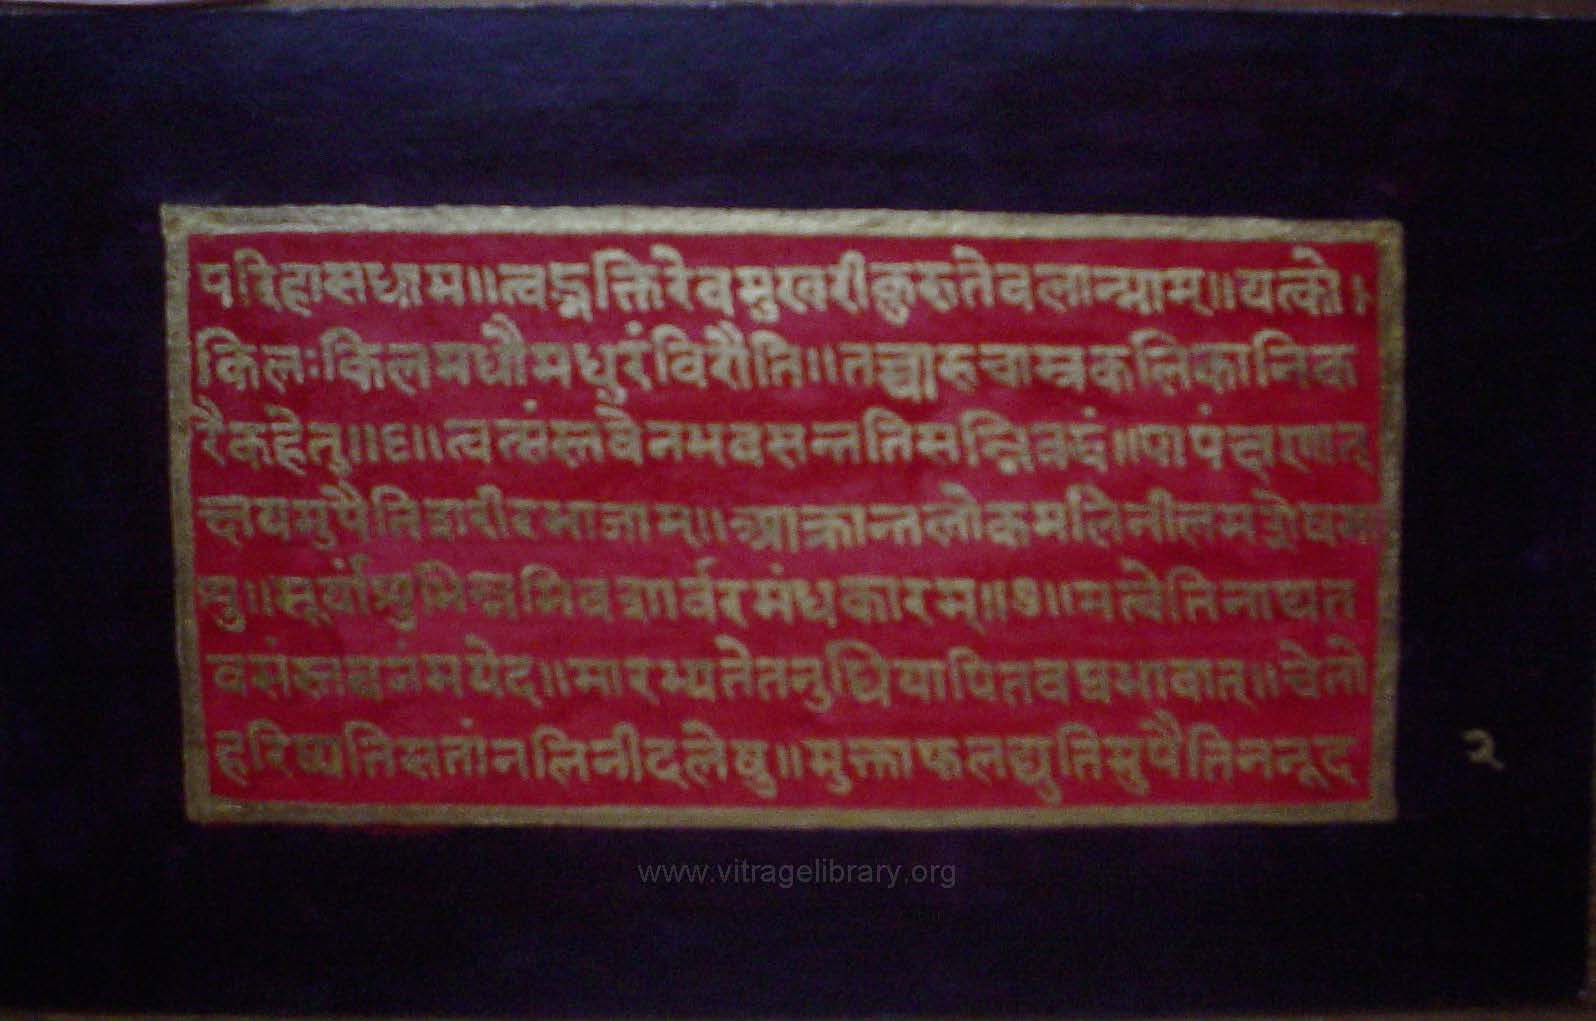 परिहासधाम॥त्वद्भक्तिरेवमुखरीकुरुतेबलान्माम्॥यत्को।
किलःकिलमधौमधुरंविरौति॥तच्चारुचाम्रकलिकानिक
रैकहेतु॥६॥त्वत्संस्तवैनभवसन्ततिसन्निबद्धं॥पापंक्षणात्
क्षयमुपैतिशरीरभाजाम्॥आक्रान्तलोकमलिनीलमशेषमा
शु॥सूर्यांशुभिन्नमिवशार्वरमंधकारम्॥७॥मत्वेतिनाथत
वसंस्तवनंमयेद॥मारभ्यतेतनुधियापितवप्रभावात्॥चेतो
हरिष्यतिसतांनलिनीदलेषु॥मुक्ताफलद्युतिमुपैतिननूद
२
www.vitragelibrary.org